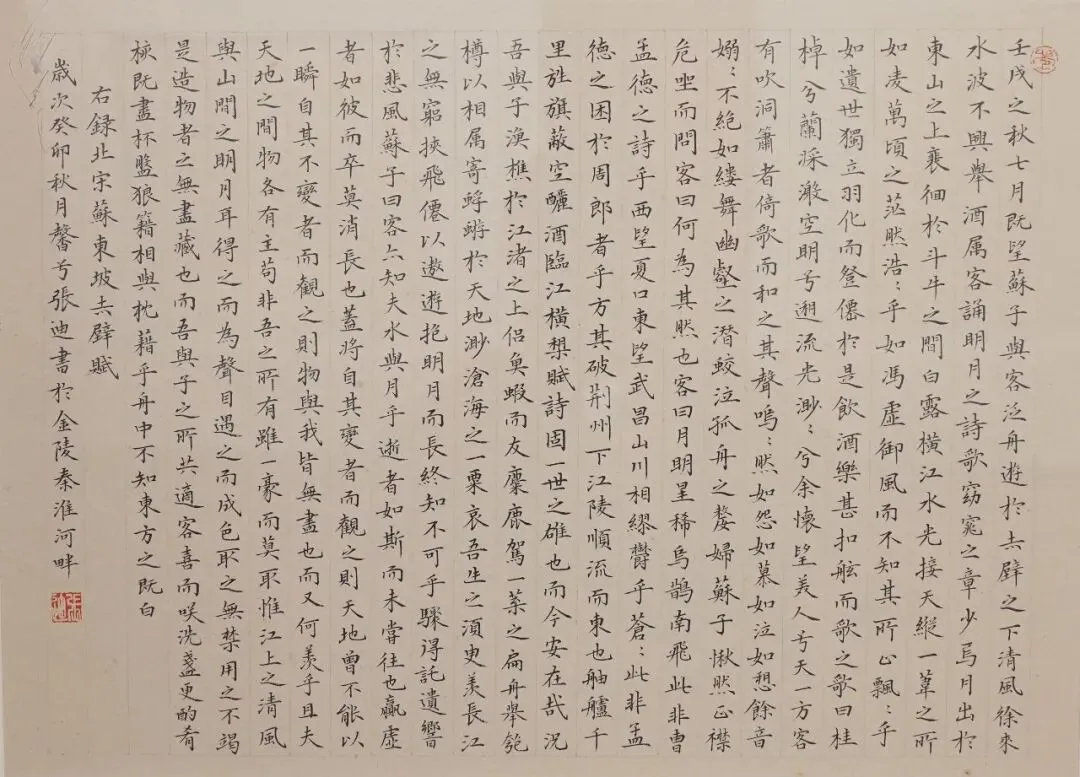 壬戌之秋七月既望蘇子與客泛舟遊於赤壁之下清風徐來
水波不興舉酒属客誦明月之詩歌窈窕之章少焉月出於
東山之上裵佪於斗牛之間白露橫江水光接天縱一葦之所
如凌萬頃之茫然浩:乎如馮虛御風而不知其所止飄:乎
如遺世獨立羽化而登僊於是飲酒樂甚扣舷而歌之歌曰桂
棹兮蘭槳擊空明兮遡流光渺:兮余懷望美人兮天一方客
有吹洞簫者倚歌而和之其聲嗚:然如怨如慕如泣如愬餘音
嫋:不絕如縷舞幽壑之潛蛟泣孤舟之嫠婦蘇子愀然正襟
危坐而問客曰何為其然也客曰月明星稀烏鵲南飛此非曹
孟德之詩乎西望夏口東望武昌山川相繆欝乎蒼:此非孟
德之困於周郎者乎方其破荆州下江陵順流而東也舳艫千
里旌旗蔽空釃酒臨江橫槊賦詩固一世之雄也而今安在哉況
吾與子漁樵於江渚之上侶魚蝦而友麋鹿駕一葉之扁舟舉匏
樽以相属寄蜉蝣於天地渺滄海之一粟哀吾生之湏臾羨長江
之無窮挾飛僊以遨遊抱明月而長終知不可乎驟得託遺響
於悲風蘇子曰客亦知夫水與月乎逝者如斯而未嘗往也贏虛
者如彼而卒莫消長也蓋將自其變者而觀之則天地曾不能以
一瞬自其不變者而觀之則物與我皆無盡也而又何羨乎且夫
天地之間物各有主苟非吾之所有雖一豪而莫取惟江上之清風
與山間之明月耳得之而為聲目遇之而成色取之無禁用之不竭
是造物者之無盡藏也而吾與子之所共適客喜而咲洗盞更酌肴
核既盡杯盤狼籍相與枕藉乎舟中不知東方之既白
右錄北宋蘇東坡赤壁賦
歲次癸卯秋月馨兮張迪書於金陵秦淮河畔